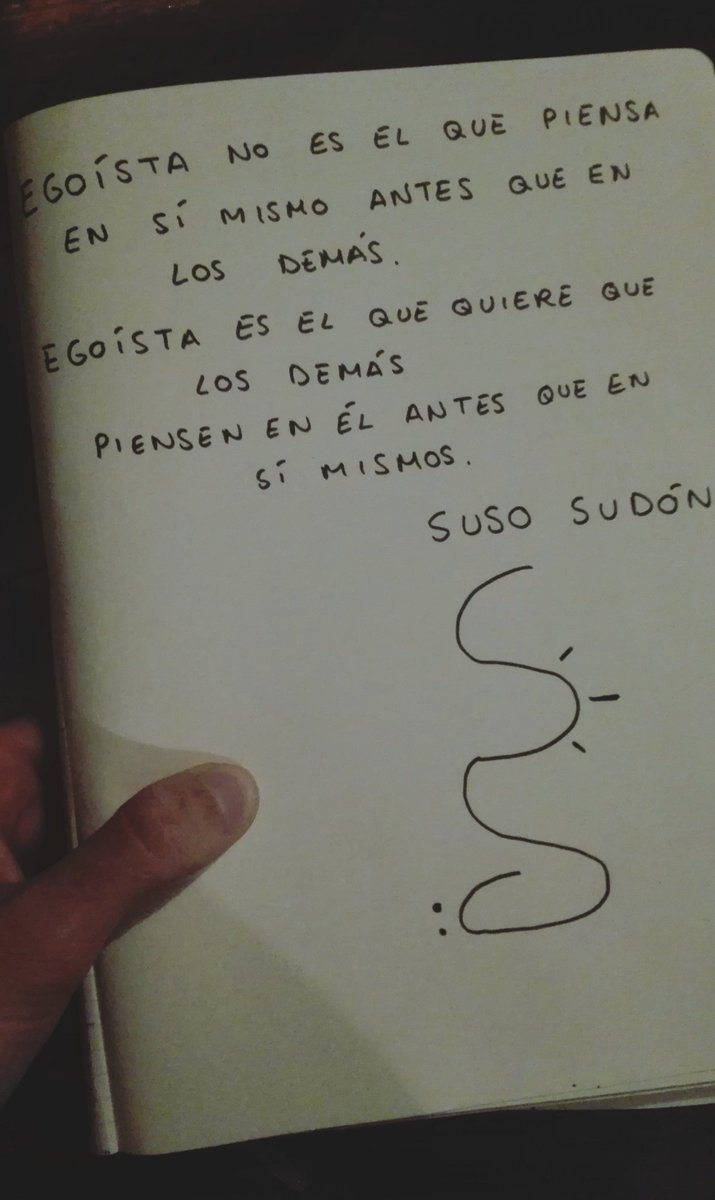 EGOÍSTA NO ES EL QUE PIENSA
EN SÍ MISMO ANTES QUE EN
LOS DEMÁS.
EGOÍSTA ES EL QUE QUIERE QUE
LOS DEMÁS
PIENSEN EN ÉL ANTES QUE EN
SÍ MISMOS.
SUSO SUDÓN